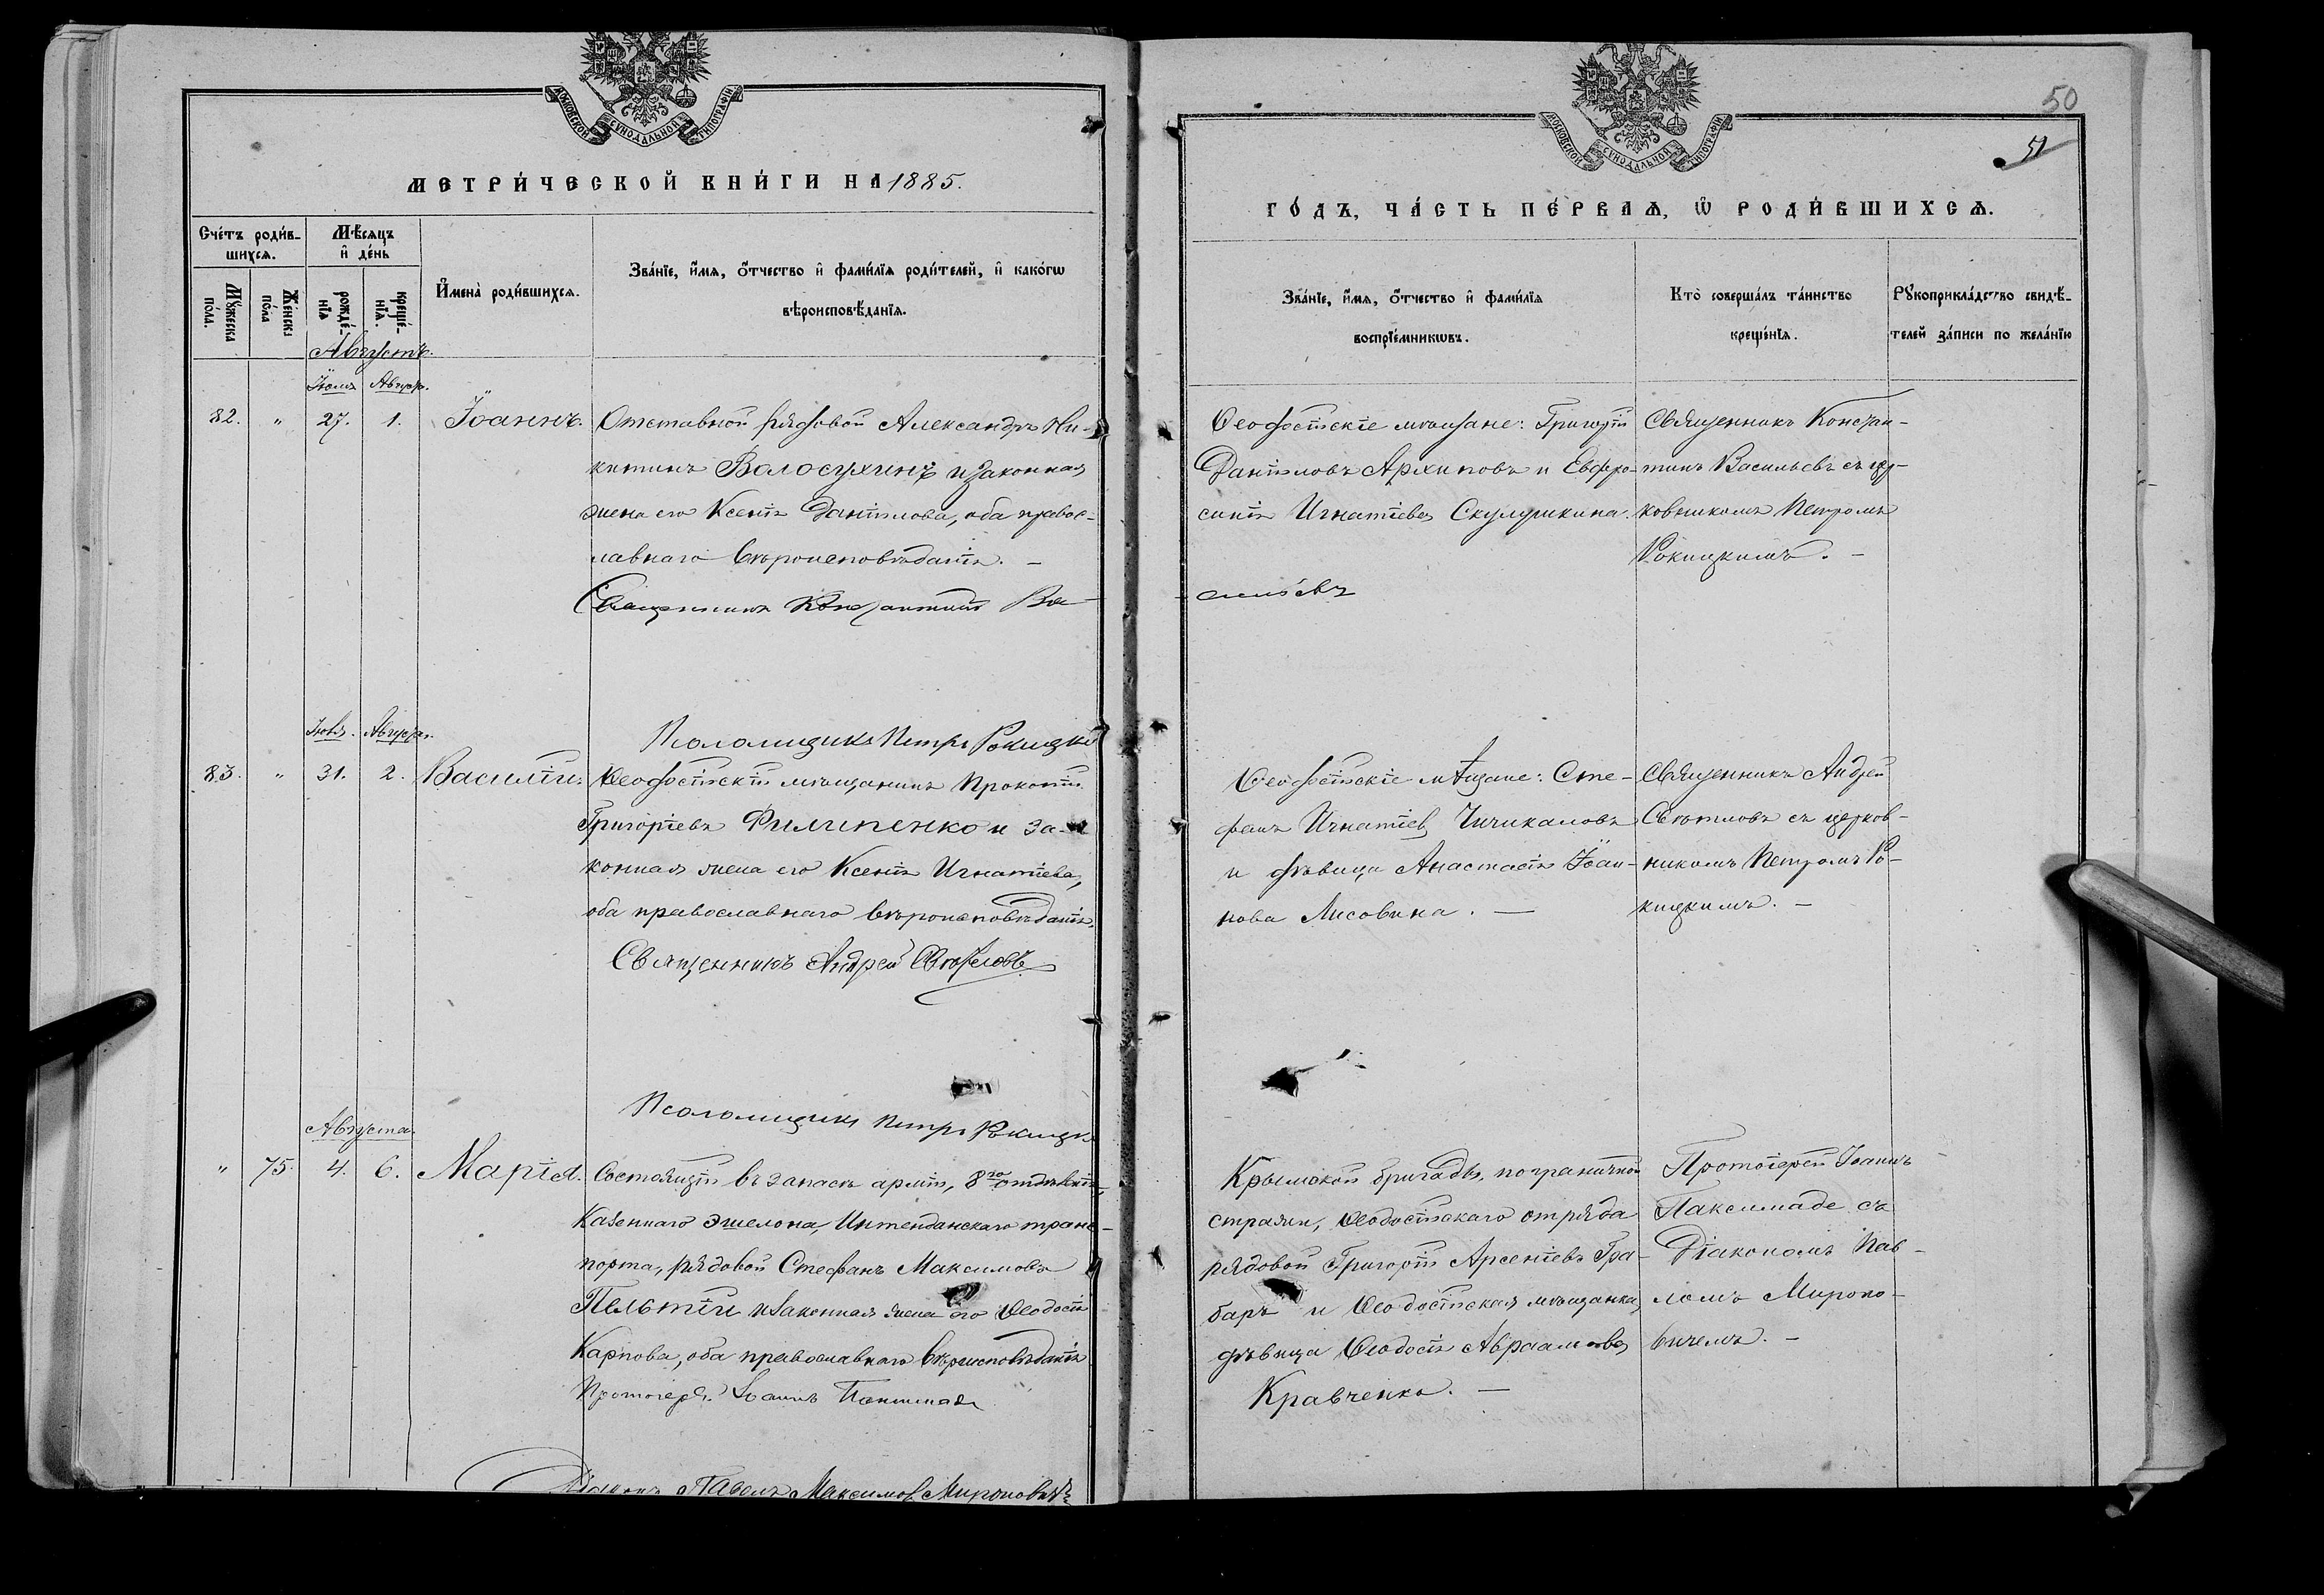 МОСКОВСКОЙ СУНОДАЛЬНОЙ ТИПОГРАФІИ
МЕТРИ́ЧЕСКОЙ КНИ́ГИ НА 1885.
Сче́тъ роди́в-
шихсѧ.
Мѣ́сѧцъ
и҆ де́нь
Мꙋ́жеска
по́ла.
Же́нска
по́ла
рожде́-
нїѧ
креще́-
нїѧ.
И҆мена̀ роди́вшихсѧ.
Зва́нїе, и҆́мѧ, ѻ҆́тчество и҆ фами́лїѧ роди́телей, и҆ како́гѡ
вѣроисповѣ́данїѧ.
Августъ.
Іюля Август.
82. " 27. 1. Іоаннъ. Отставной рядовой Александръ Ни-
китинъ Волосухинъ и законная
жена его Ксенія Даніилова, оба правос-
лавнаго вѣроисповѣданія. –
Священникъ Константинъ Ва-
Псаломщикъ Петръ Рокицкій
Іюля. Август.
83. " 31. 2. Василій. Ѳеодосійскій мѣщанинъ Прокопій
Григоріевъ Филипенко и за-
конная жена его Ксенія Игнатіева,
оба православнаго вѣроисповѣданія.
Священникъ Андрей Свѣтловъ
Псаломщикъ Петръ Рокицкі
Августа.
" 75. 4. 6. Марія. Состоящій въ запасѣ арміи, 8го отдѣленія,
Казеннаго эшелона, Интенданскаго транс-
порта, рядовой Стефанъ Максимовъ
Пелѣтій и законная жена его Ѳеодосія
Карпова, оба православнаго вѣроисповѣданія
Протоіерей Іоаннъ Паксимаде
Діаконъ Павелъ Максимов Мироновичъ
МОСКОВСКОЙ СУНОДАЛЬНОЙ ТИПОГРАФІИ
50
51
ГО́ДЪ, ЧА́СТЬ ПЕ́РВАѦ, Ѡ҆ РОДИ́ВШИХСѦ.
Зва́нїе, и҆́мѧ, ѻ҆́тчество и҆ фами́лїѧ
воспрїе́мникѡвъ.
Кто̀ соверша́лъ та́инство
креще́нїѧ.
Рꙋкоприкла́дство свидѣ́-
телей за́писи по жела́нїю
Ѳеодосійскіе мѣщане: Григорій
Даніиловъ Архиповъ и Евфро-
синія Игнатіева
синьевъ
Священникъ Констан-
тинъ Васильевъ съ цер-
ковникомъ Петромъ
Рокицкимъ. –
Ѳеодосійскіе мѣщане: Сте-
фанъ Игнатіев Чичикаловъ
и дѣвица Анастасія Іоан-
нова Лисовина. –
Священникъ Андрей
Свѣтловъ съ церков-
никомъ Петромъ Ро-
кицкимъ. –
Крымской бригады, пограничной
стражи, Ѳеодосійскаго отряда
рядовой Григорій Арсеніевъ Гра-
баръ и Ѳеодосійская мѣщанка,
дѣвица Ѳеодосія Авраамова
Кравченко. –
Протоіерей Іоаннъ
Паксимаде съ
Діакономъ Пав-
ломъ Мироно-
вичемъ. –